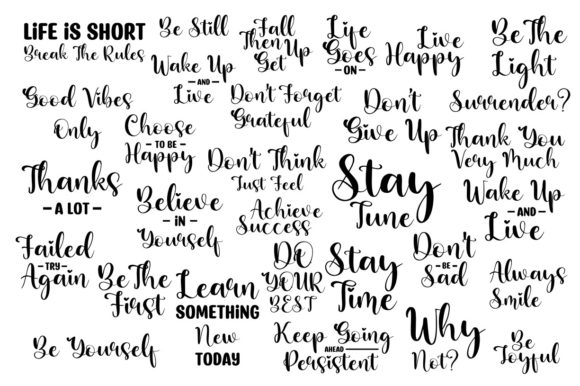 LiFE iS SHORT
Break The Rules
Be Still
Fall
Then Up
Get
Life
Goes
- ON -
Live
Happy
Be The
Light
Wake Up
- AND -
Live
Good Vibes
Only
Choose
- TO BE -
Happy
Don't Forget
Grateful
Don't
Give Up
Surrender?
Thank You
Very Much
Thanks
- A LOT -
Believe
- iN -
Yourself
Don't Think
Just Feel
Achieve
Success
Stay
Tune
Wake Up
- AND -
Live
Failed
- TRY -
Again
Be The
First
Learn
SOMETHING
DO
YOUR
BEST
Stay
Time
Don't
- BE -
Sad
Always
Smile
Be Yourself
New
TODAY
Keep Going
AHEAD
Persistent
Why
Not?
Be
Joyful